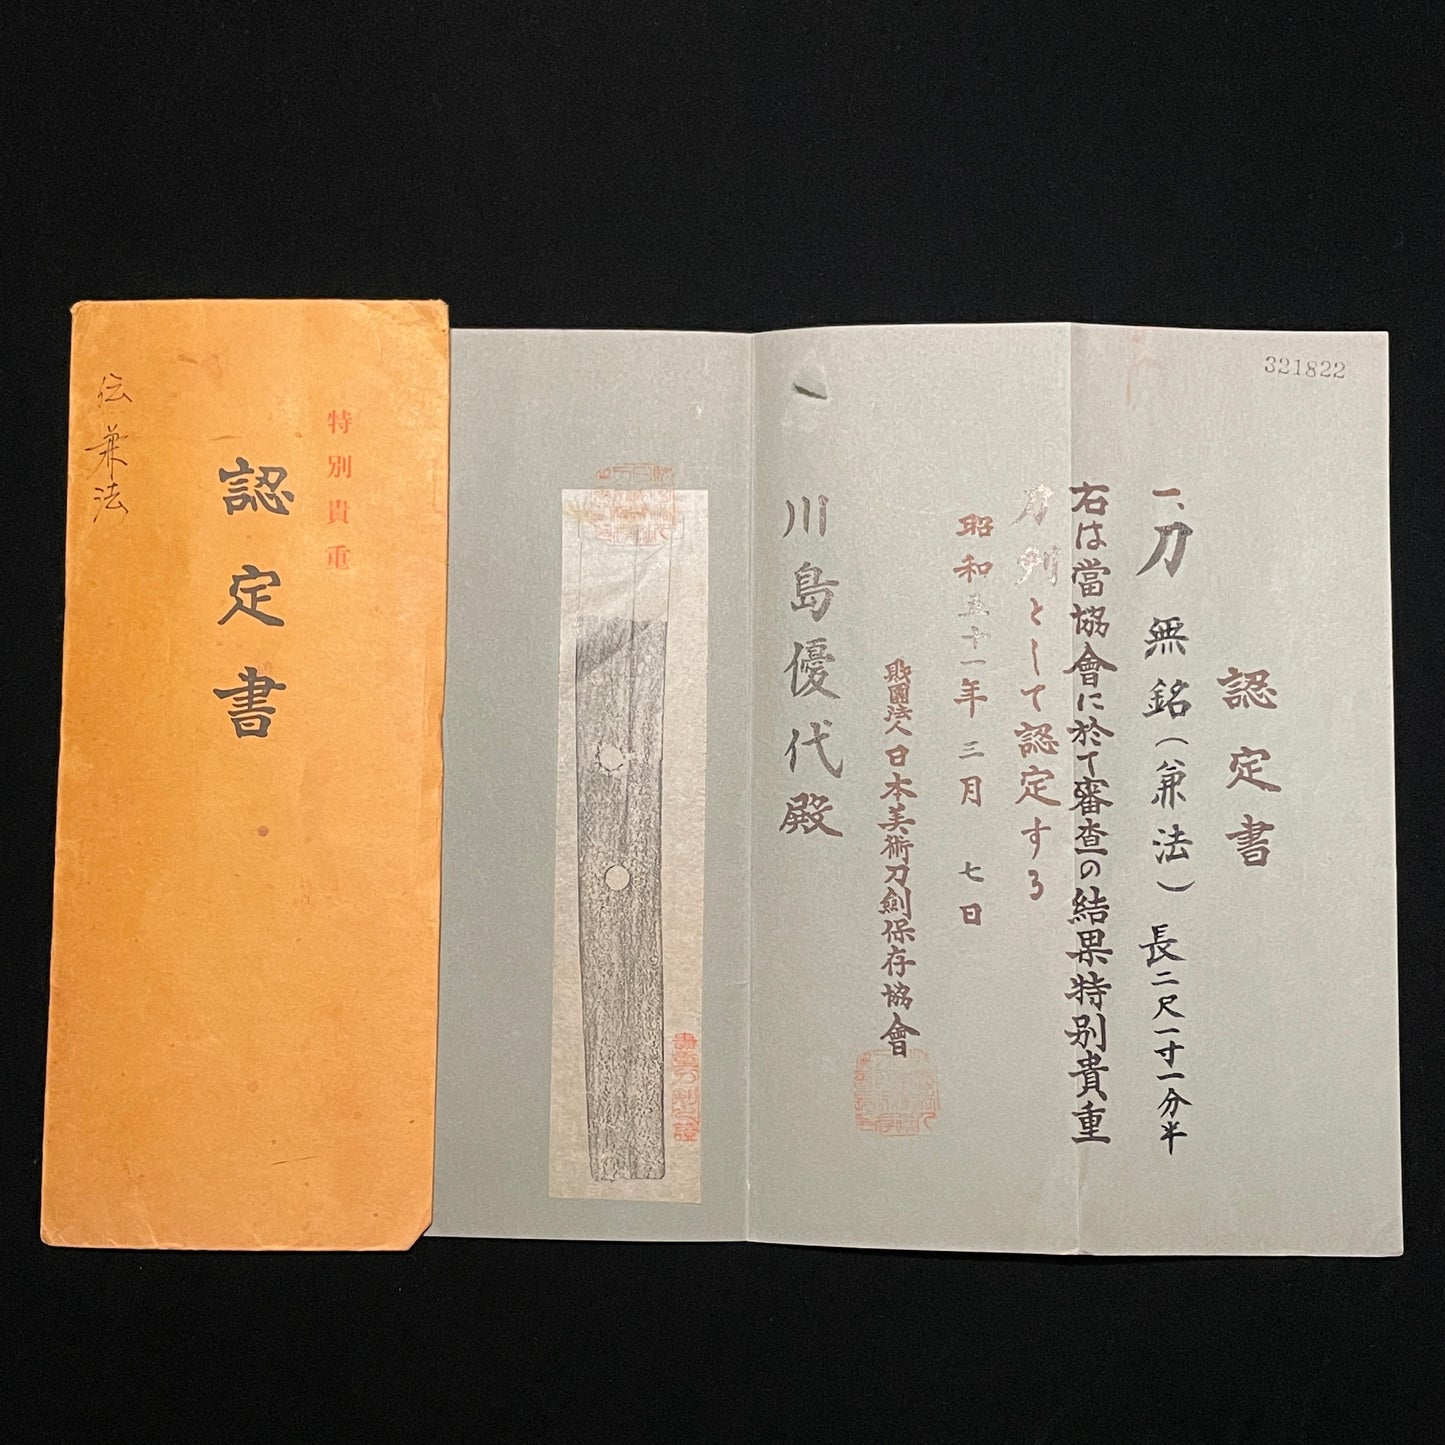 特別貴重
認定書
伝 兼法
321822
認定書
一、刀 無銘(兼法) 長二尺一寸一分半
右は當協會に於て審査の結果特別貴重
刀剣として認定する
昭和五十一年三月七日
財團法人日本美術刀剣保存協會
川島優代殿